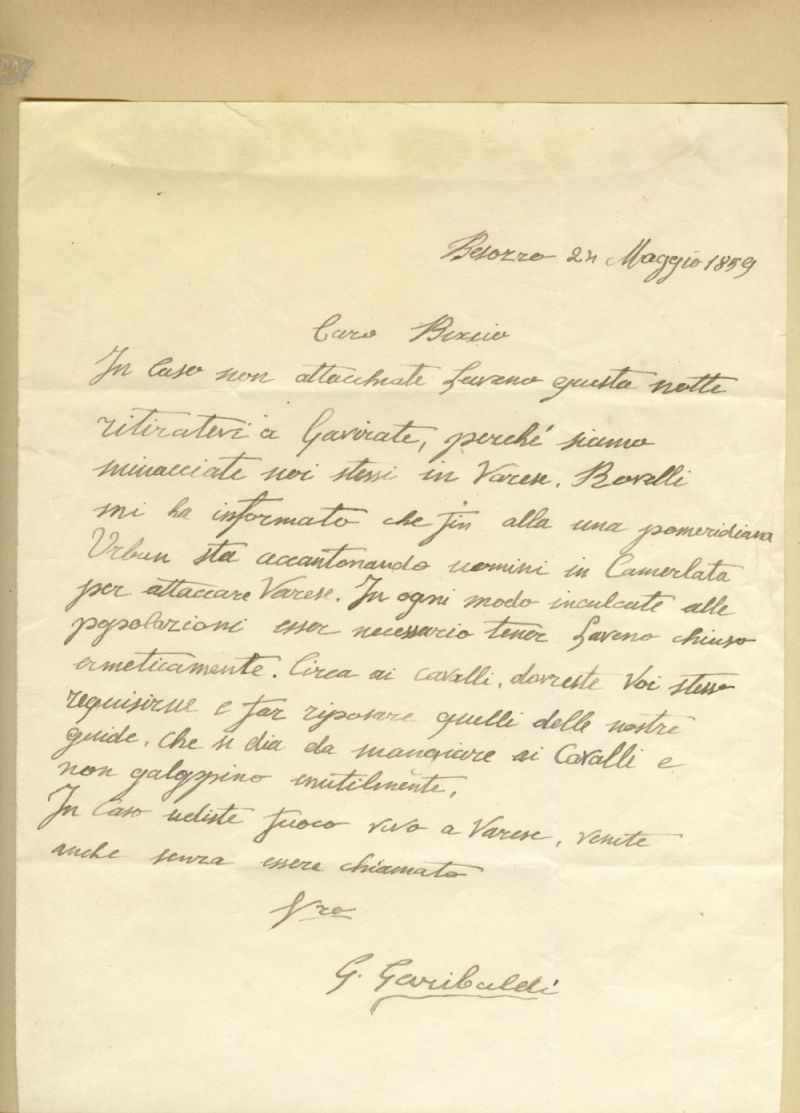 Besozzo 24 Maggio 1859
Caro Bixio
In caso non attacchiate Laveno questa notte
ritiratevi a Gavirate, perché siamo
minacciate noi stessi in Varese. Rovelli
mi ha informato che fin alla una pomeridiana
Urban sta accantonando uomini in Camerlata
per attaccare Varese. In ogni modo inculcate alle
popolazioni esser necessario tener Laveno chiuso
ermeticamente. Circa ai cavalli, dovreste Voi stesso
requisirne e far riposare quelli delle nostre
guide, che si dia da mangiare ai Cavalli e
non galoppino inutilmente,
In caso udiste fuoco vivo a Varese, venite
anche senza essere chiamato
Vro
G. Garibaldi